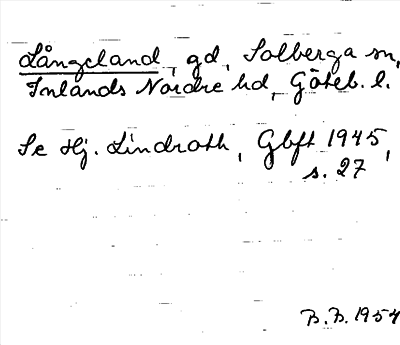 Långeland, gd, Solberga sn,
Inlands Nordre hd, Göteb. l.
Se Hj. Lindroth, Gbft 1945,
s. 27
B.B. 1954